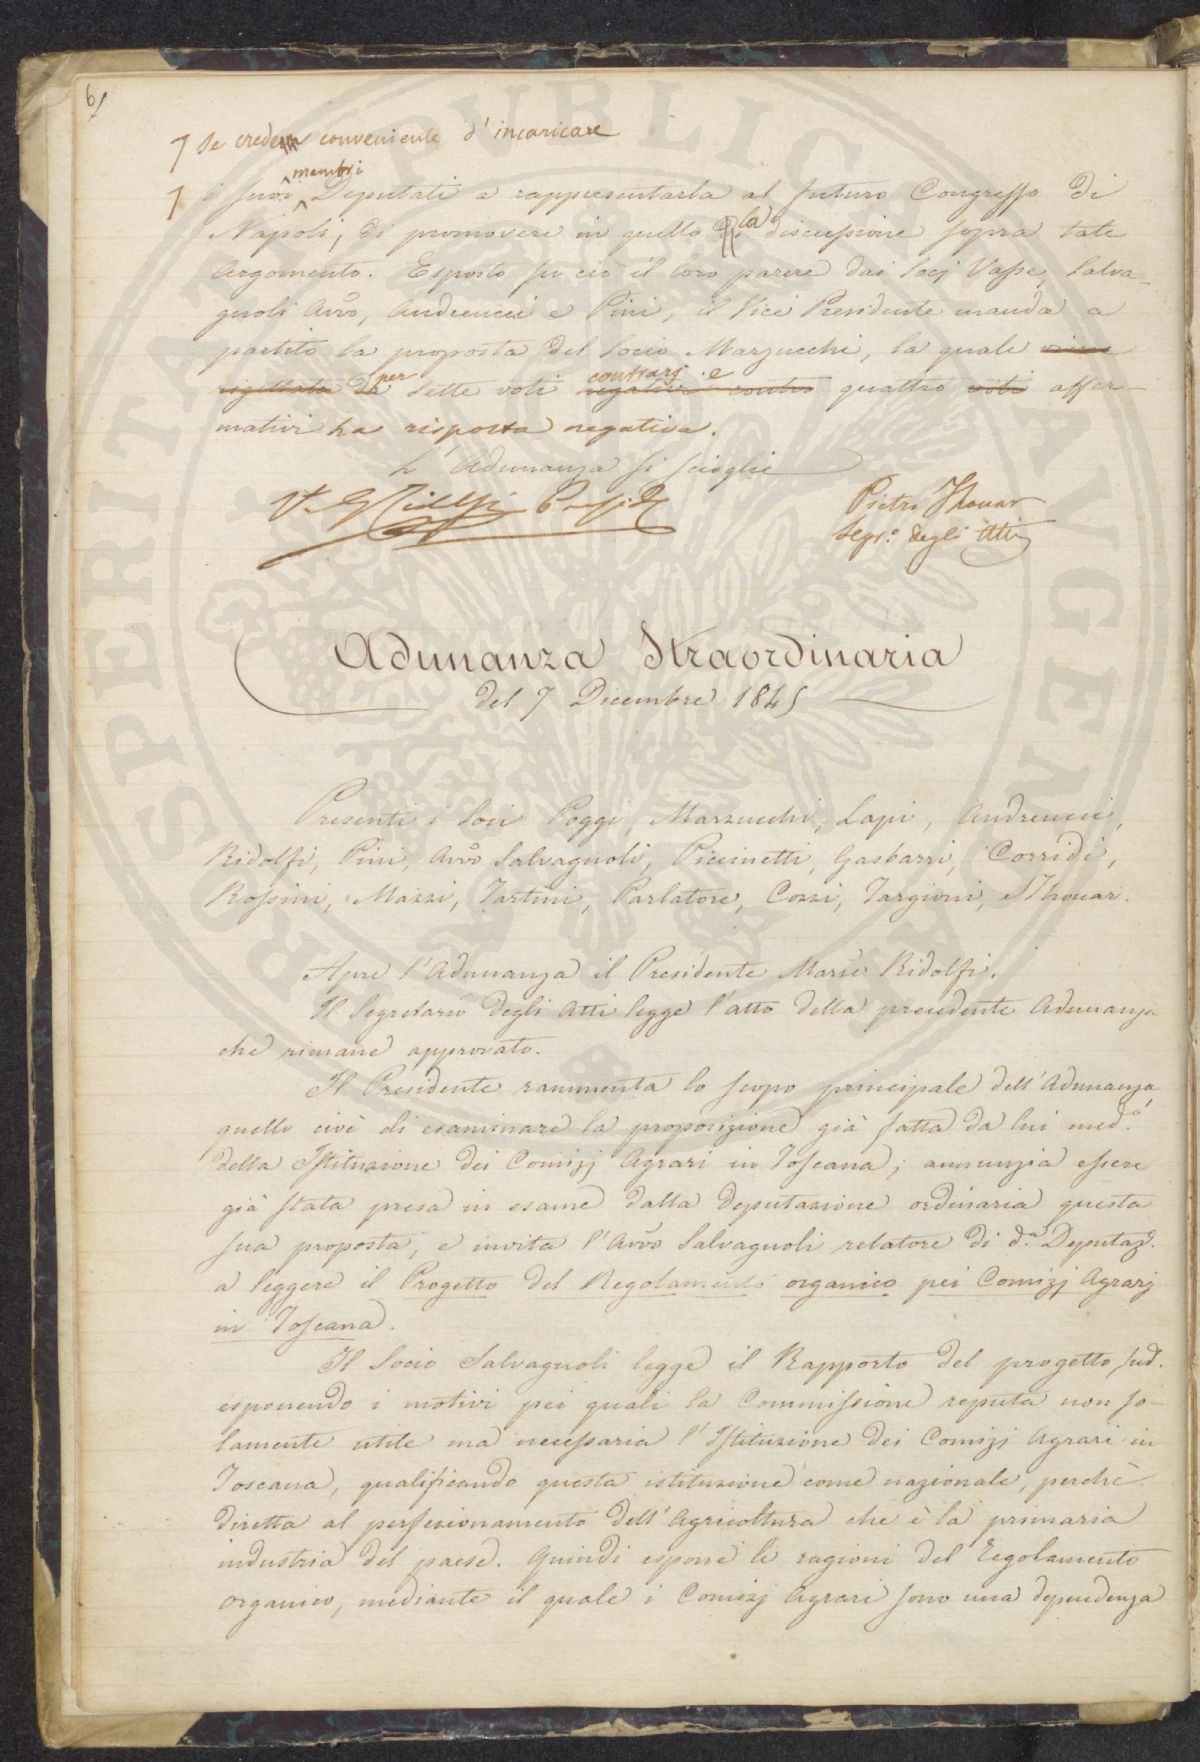 6/
se creda conveniente d'incaricare
membri
i suoi Deputati a rappresentarla al futuro Congresso di
Napoli, di promovere in quello la discussione sopra tale
argomento. Esposto su ciò il loro parere dai Socj Vasse, Salva-
gnoli Avvo, Andreucci e Pini, il Vice Presidente manda a
partito la proposta del Socio Marzucchi, la quale viene
per contrarj e
rigettata da sette voti negativi contro quattro voti affer-
mativi ha risposta negativa.
L'Adunanza si scioglie
V. Ridolfi Presid
Pietro Thouar
Segr.o degli Atti
Adunanza Straordinaria
del 7 Dicembre 1845
Presenti i Soci Poggi, Marzucchi, Lapi, Andreucci,
Ridolfi, Pini, Avvo Salvagnoli, Piccinetti, Gasbarri, Corridi,
Rossini, Mazzi, Tartini, Parlatore, Cozzi, Targioni, e Thouar.
Apre l'Adunanza il Presidente March Ridolfi.
Il Segretario degli Atti legge l'atto della precedente Adunanza
che rimane approvato.
Il Presidente rammenta lo scopo principale dell'Adunanza
quello cioè di esaminare la proposizione già fatta da lui med.o
della Istituzione dei Comizj Agrari in Toscana; annunzia essere
già stata presa in esame dalla Deputazione ordinaria questa
sua proposta, e invita l'Avvo Salvagnoli relatore di d.a Deputaz.e
a leggere il Progetto del Regolamento organico pei Comizj Agrarj
in Toscana.
Il Socio Salvagnoli legge il Rapporto del progetto sud.o
esponendo i motivi pei quali la Commissione reputa non so-
lamente utile ma necessaria l'Istituzione dei Comizj Agrari in
Toscana, qualificando questa istituzione come nazionale, perchè
diretta al perfezionamento dell'Agricoltura che è la primaria
industria del paese. Quindi espone le ragioni del Regolamento
organico, mediante il quale i Comizj Agrari sono una dependenza